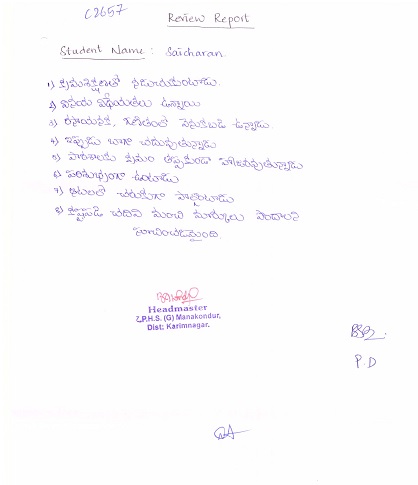 C2657
Review Report
Student Name : Saicharan.
1) క్రమశిక్షణతో నడుచుకుంటాడు.
2) వినయ విధేయతలు ఉన్నాయి
3) రసాయనిక, గణితంలో వెనుకబడి ఉన్నాడు.
4) ఇప్పుడు బాగా చదువుతున్నాడు
5) పాఠశాలకు క్రమం తప్పకుండా హాజరవుతున్నాడు
6) పరిశుభ్రంగా ఉంటాడు
7) ఆటలలో చురుకుగా పాల్గొంటాడు
8) కష్టపడి చదివి మంచి మార్కులు పొందాలని
సూచించడమైంది.
Headmaster
Z.P.H.S. (G) Manakondur,
Dist: Karimnagar.
P.D